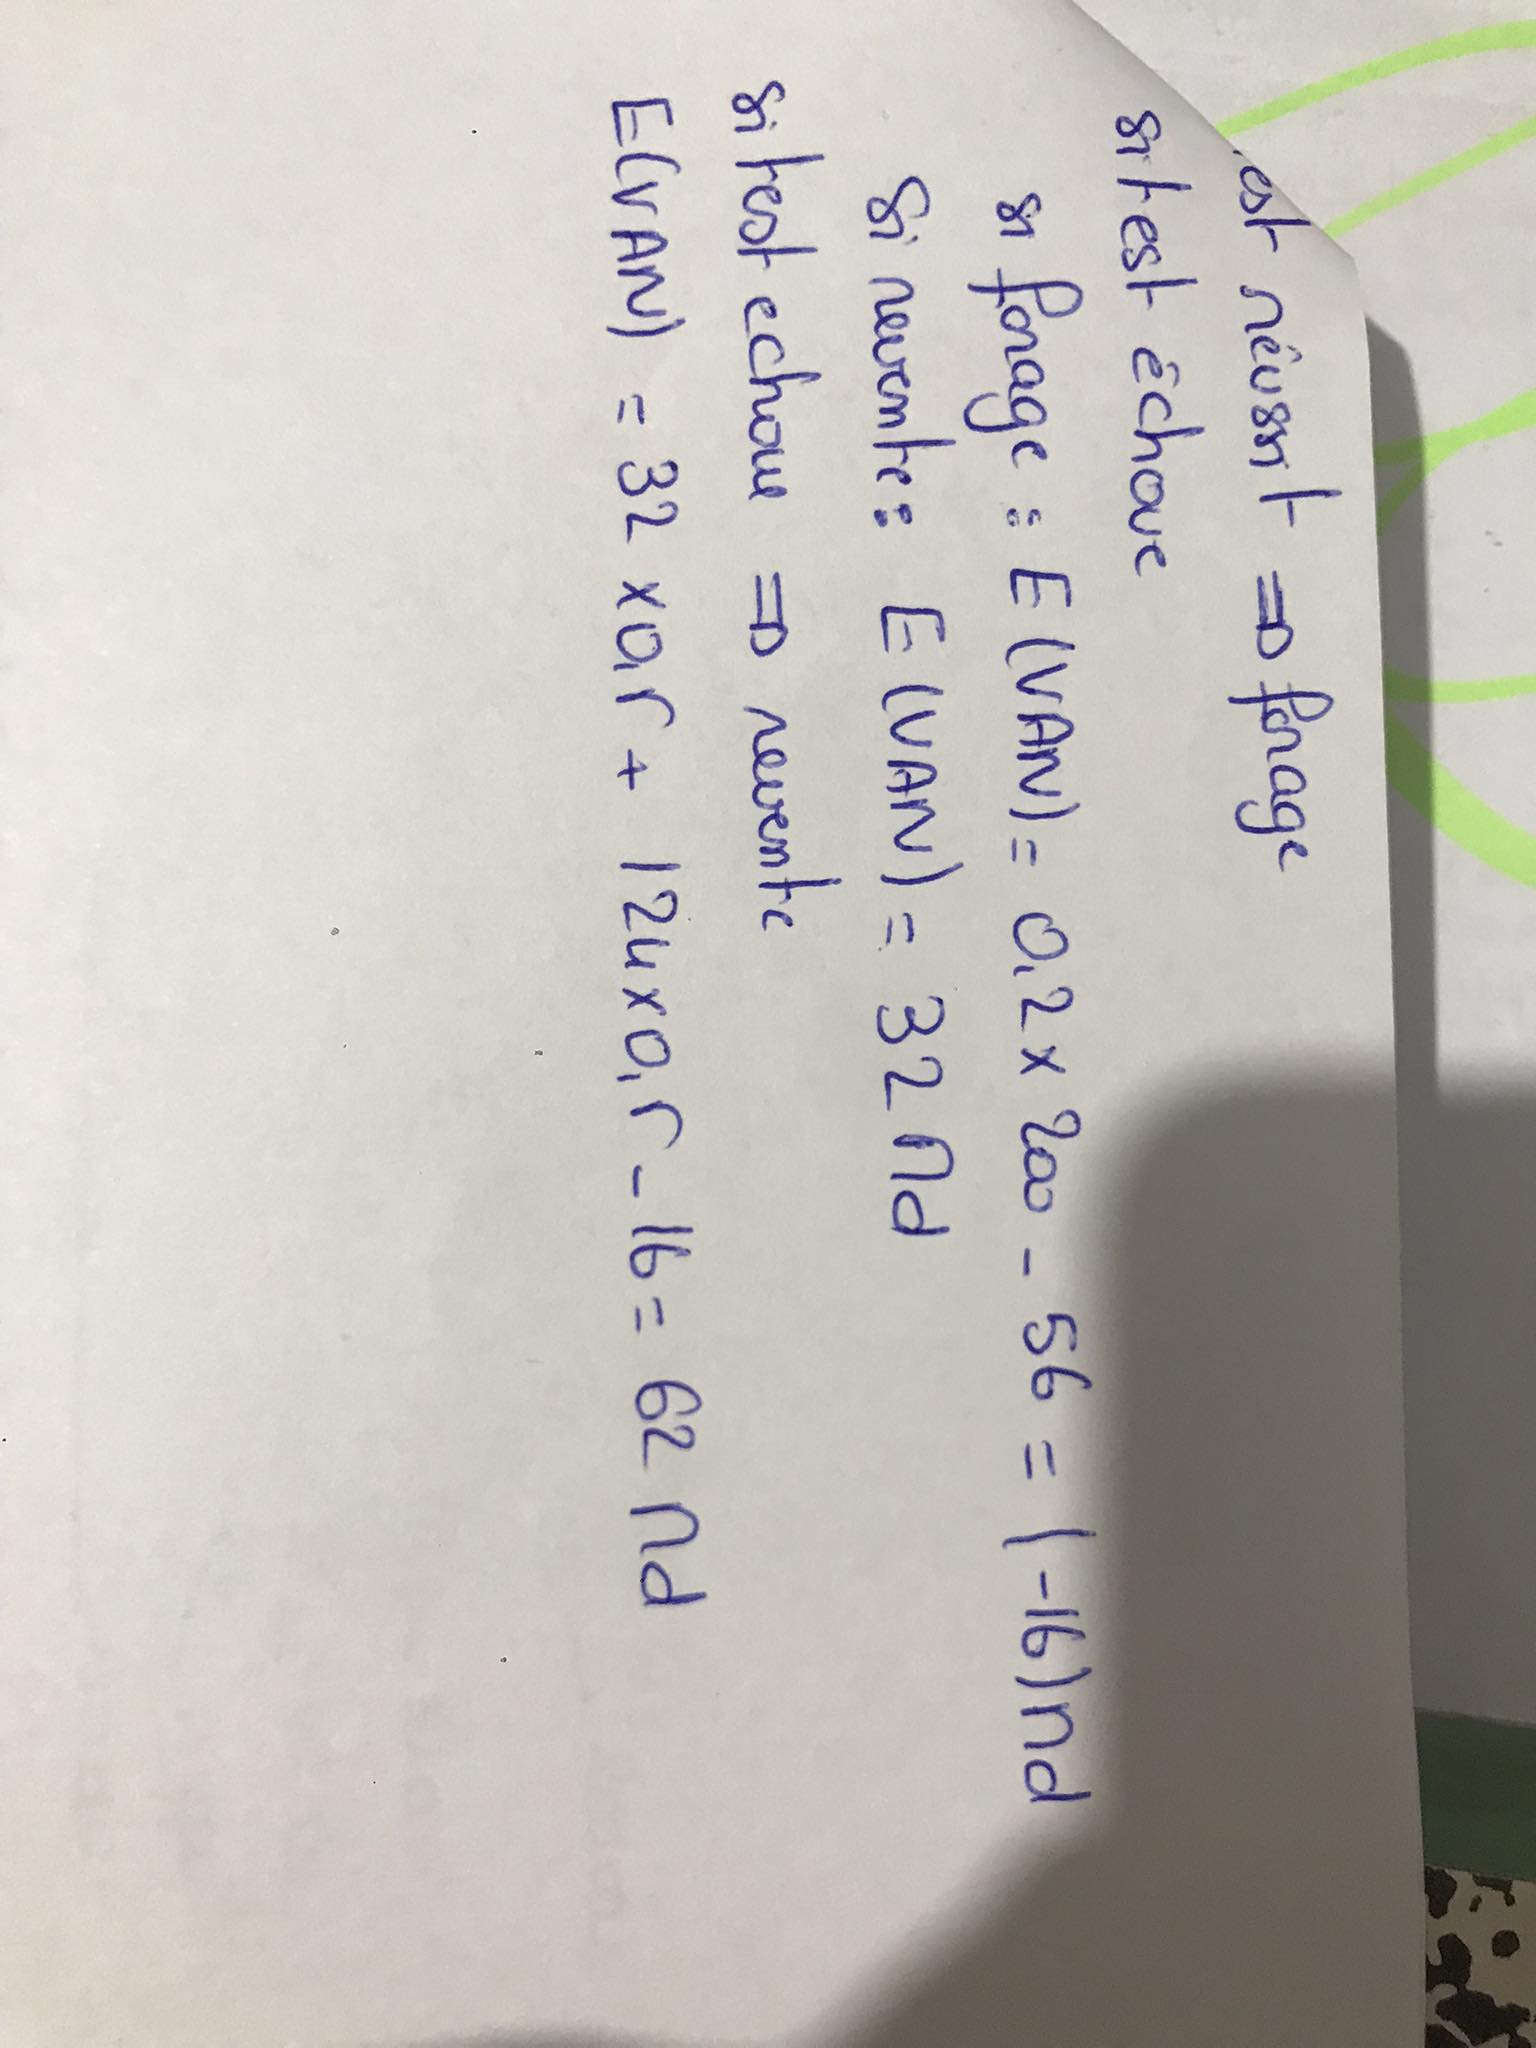 est réussit ⇒ forage
si test échoue
si forage : E(VAN) = 0,2 x 200 - 56 = (-16) Md
si revente : E(VAN) = 32 Md
si test echoue ⇒ revente
E(VAN) = 32 x 0,5 + 124 x 0,5 - 16 = 62 Md